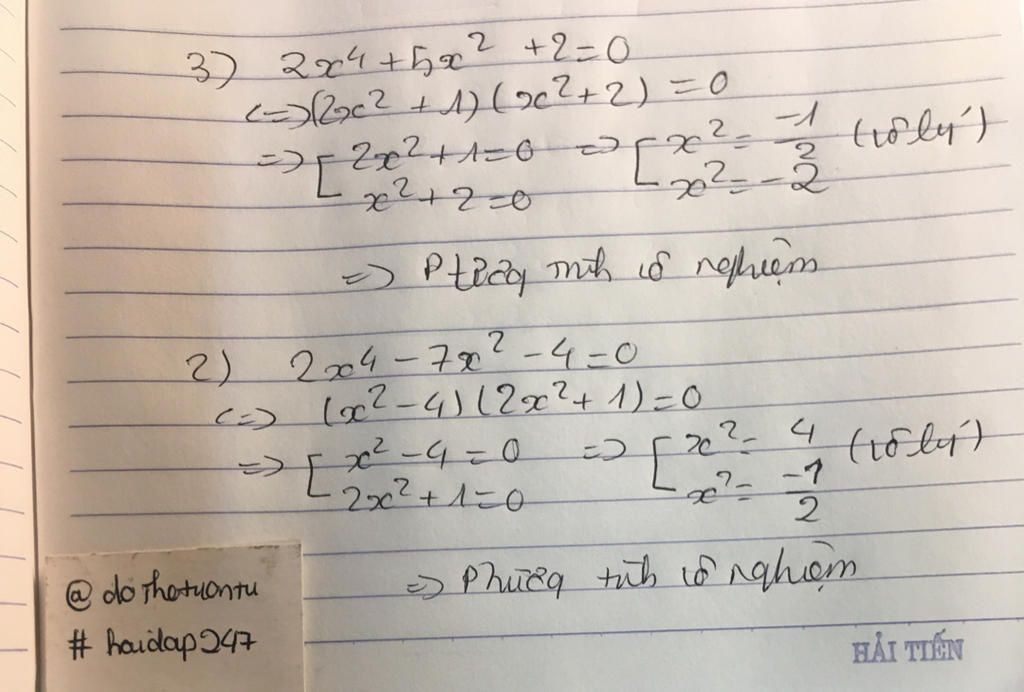 3) 2x⁴ + 5x² + 2 = 0
<=> (2x² + 1) (x² + 2) = 0
=> [ 2x² + 1 = 0 => [ x² = -1/2 (vô lý)
x² + 2 = 0 x² = -2
=> P trình vô nghiệm
2) 2x⁴ - 7x² - 4 = 0
<=> (x² - 4) (2x² + 1) = 0
=> [ x² - 4 = 0 => [ x² = 4 (vô lý)
2x² + 1 = 0 x² = -1/2
=> Phương trình vô nghiệm
@dothotuontu
# hoidap247
HẢI TIẾN